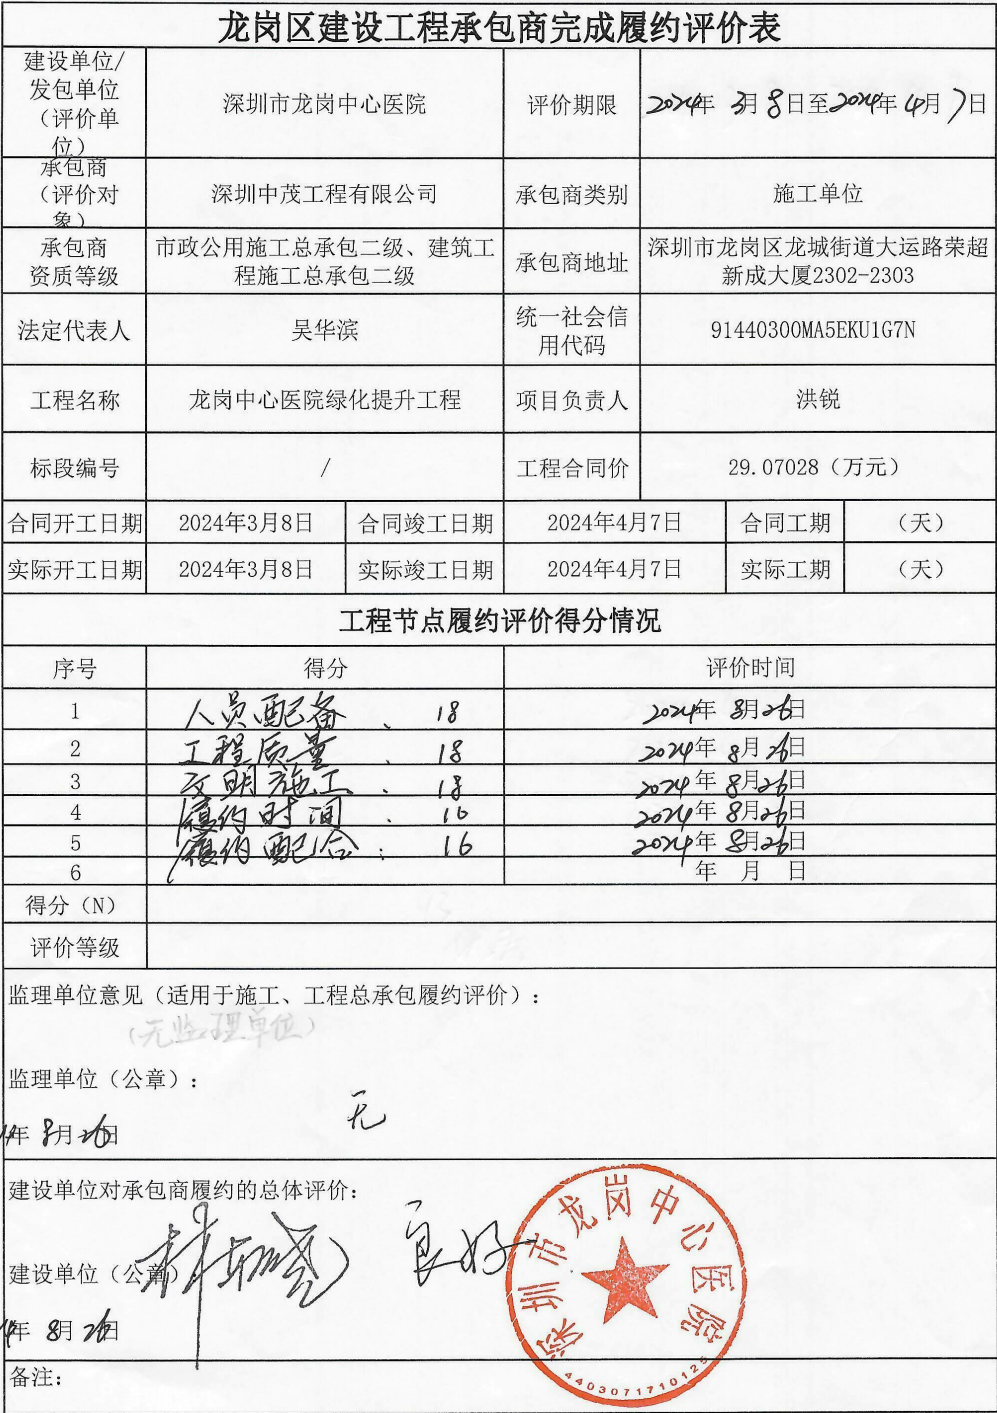 龙岗区建设工程承包商完成履约评价表
建设单位/
发包单位
（评价单
位）
深圳市龙岗中心医院
评价期限
2024年 3月 8日至2024年 4月 7日
承包商
（评价对
象）
深圳中茂工程有限公司
承包商类别
施工单位
承包商
资质等级
市政公用施工总承包二级、建筑工
程施工总承包二级
承包商地址
深圳市龙岗区龙城街道大运路荣超
新成大厦2302-2303
法定代表人
吴华滨
统一社会信
用代码
91440300MA5EKU1G7N
工程名称
龙岗中心医院绿化提升工程
项目负责人
洪锐
标段编号
/
工程合同价
29.07028（万元）
合同开工日期 2024年3月8日 合同竣工日期 2024年4月7日 合同工期 （天）
实际开工日期 2024年3月8日 实际竣工日期 2024年4月7日 实际工期 （天）
工程节点履约评价得分情况
序号 得分 评价时间
1 人员配备 、 18 2024年 8月26日
2 工程质量 、 18 2024年 8月26日
3 文明施工 、 18 2024年 8月26日
4 履约时间 ： 16 2024年 8月26日
5 履约配合 ： 16 2024年 8月26日
6 年 月 日
得分（N）
评价等级
监理单位意见（适用于施工、工程总承包履约评价）：
（无监理单位）
监理单位（公章）：
无
年 8月26日
建设单位对承包商履约的总体评价：
良好
建设单位（公章）
年 8月26日
深圳市龙岗中心医院
4403071710125
备注：